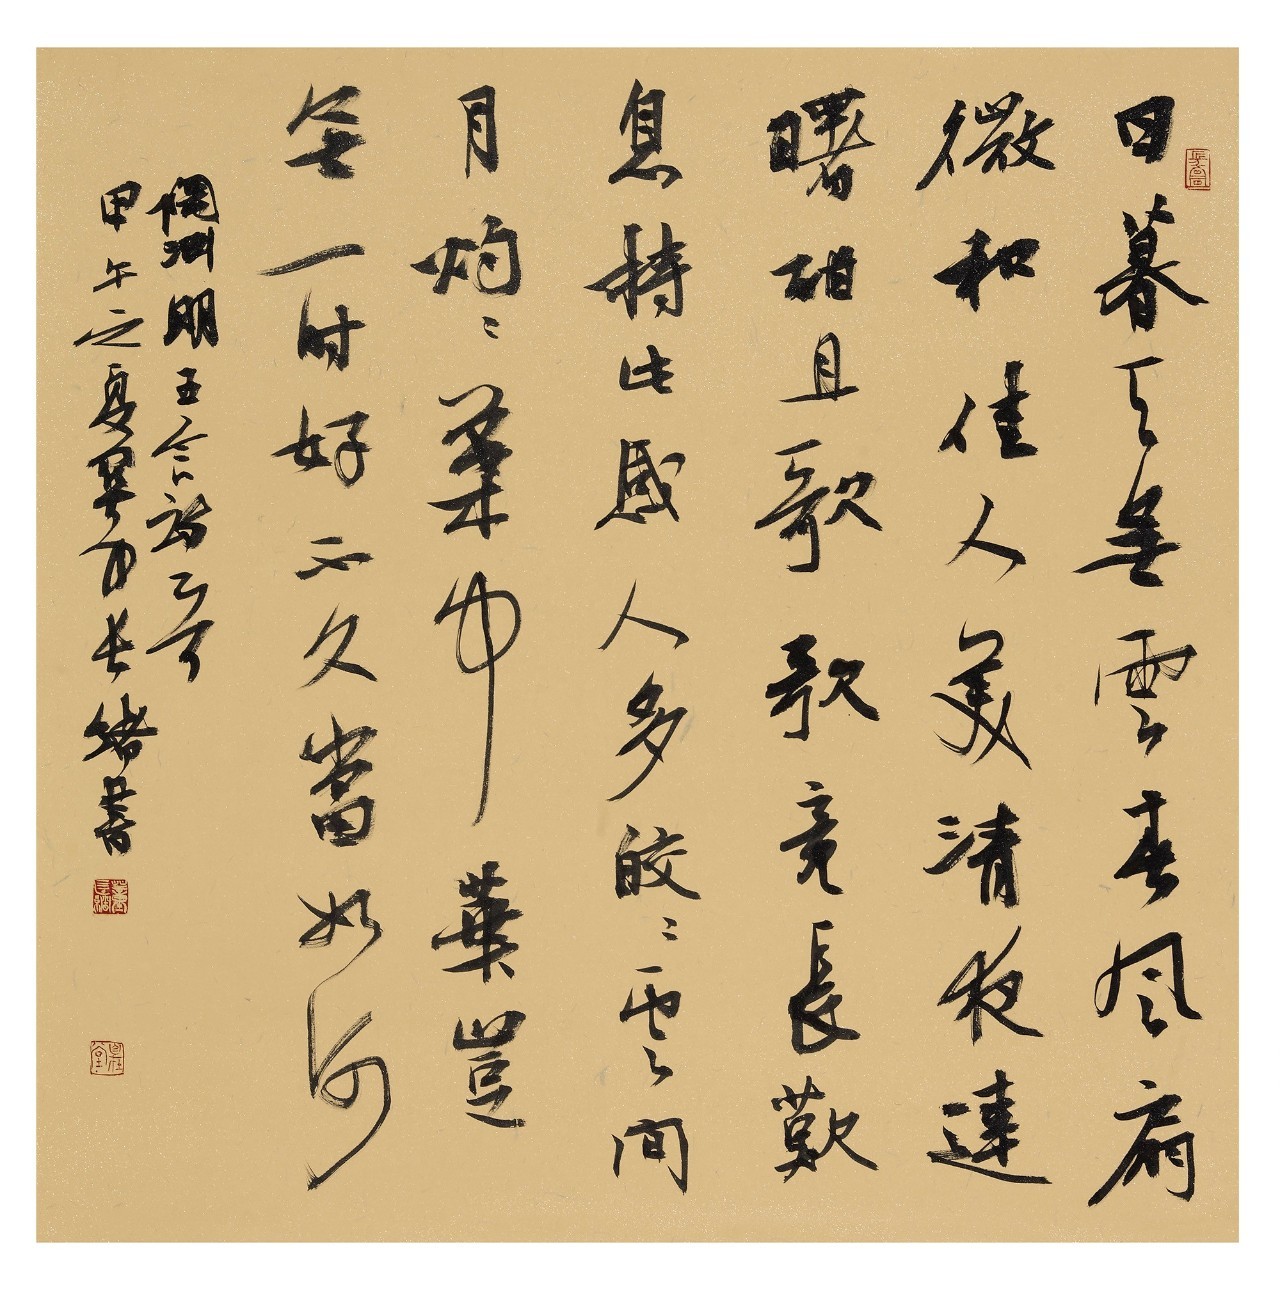 日暮天無雲春風扇
微和佳人美清夜達
曙酣且歌歌竟長歎
息持此感人多皎〻雲間
月灼〻葉中華豈
無一時好不久當如何
陶淵明五言詩一首
甲午之夏長緒書